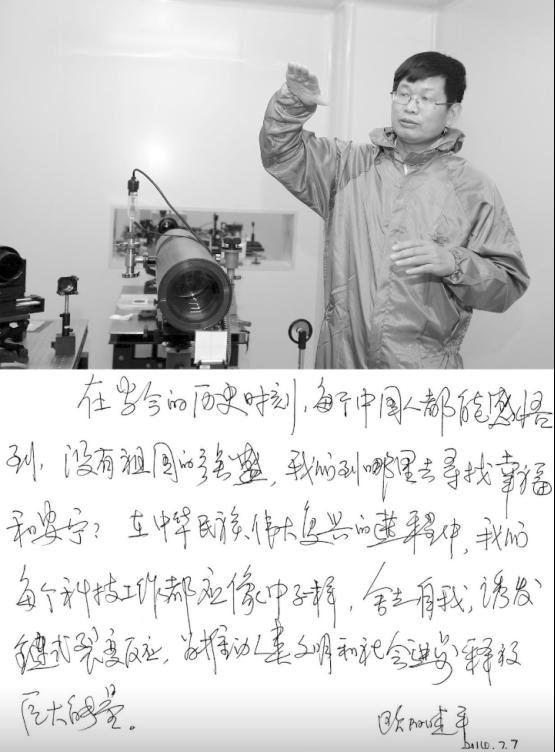 在当今的历史时刻，每个中国人都能感悟
到，没有祖国的强盛，我们到哪里去寻找幸福
和安宁？在中华民族伟大复兴的进程中，我们
每个科技工作都应像中子一样，舍去自我，诱发
链式裂变反应，为推动人类文明和社会进步释放
巨大能量。
欧阳晓平
2010.7.7